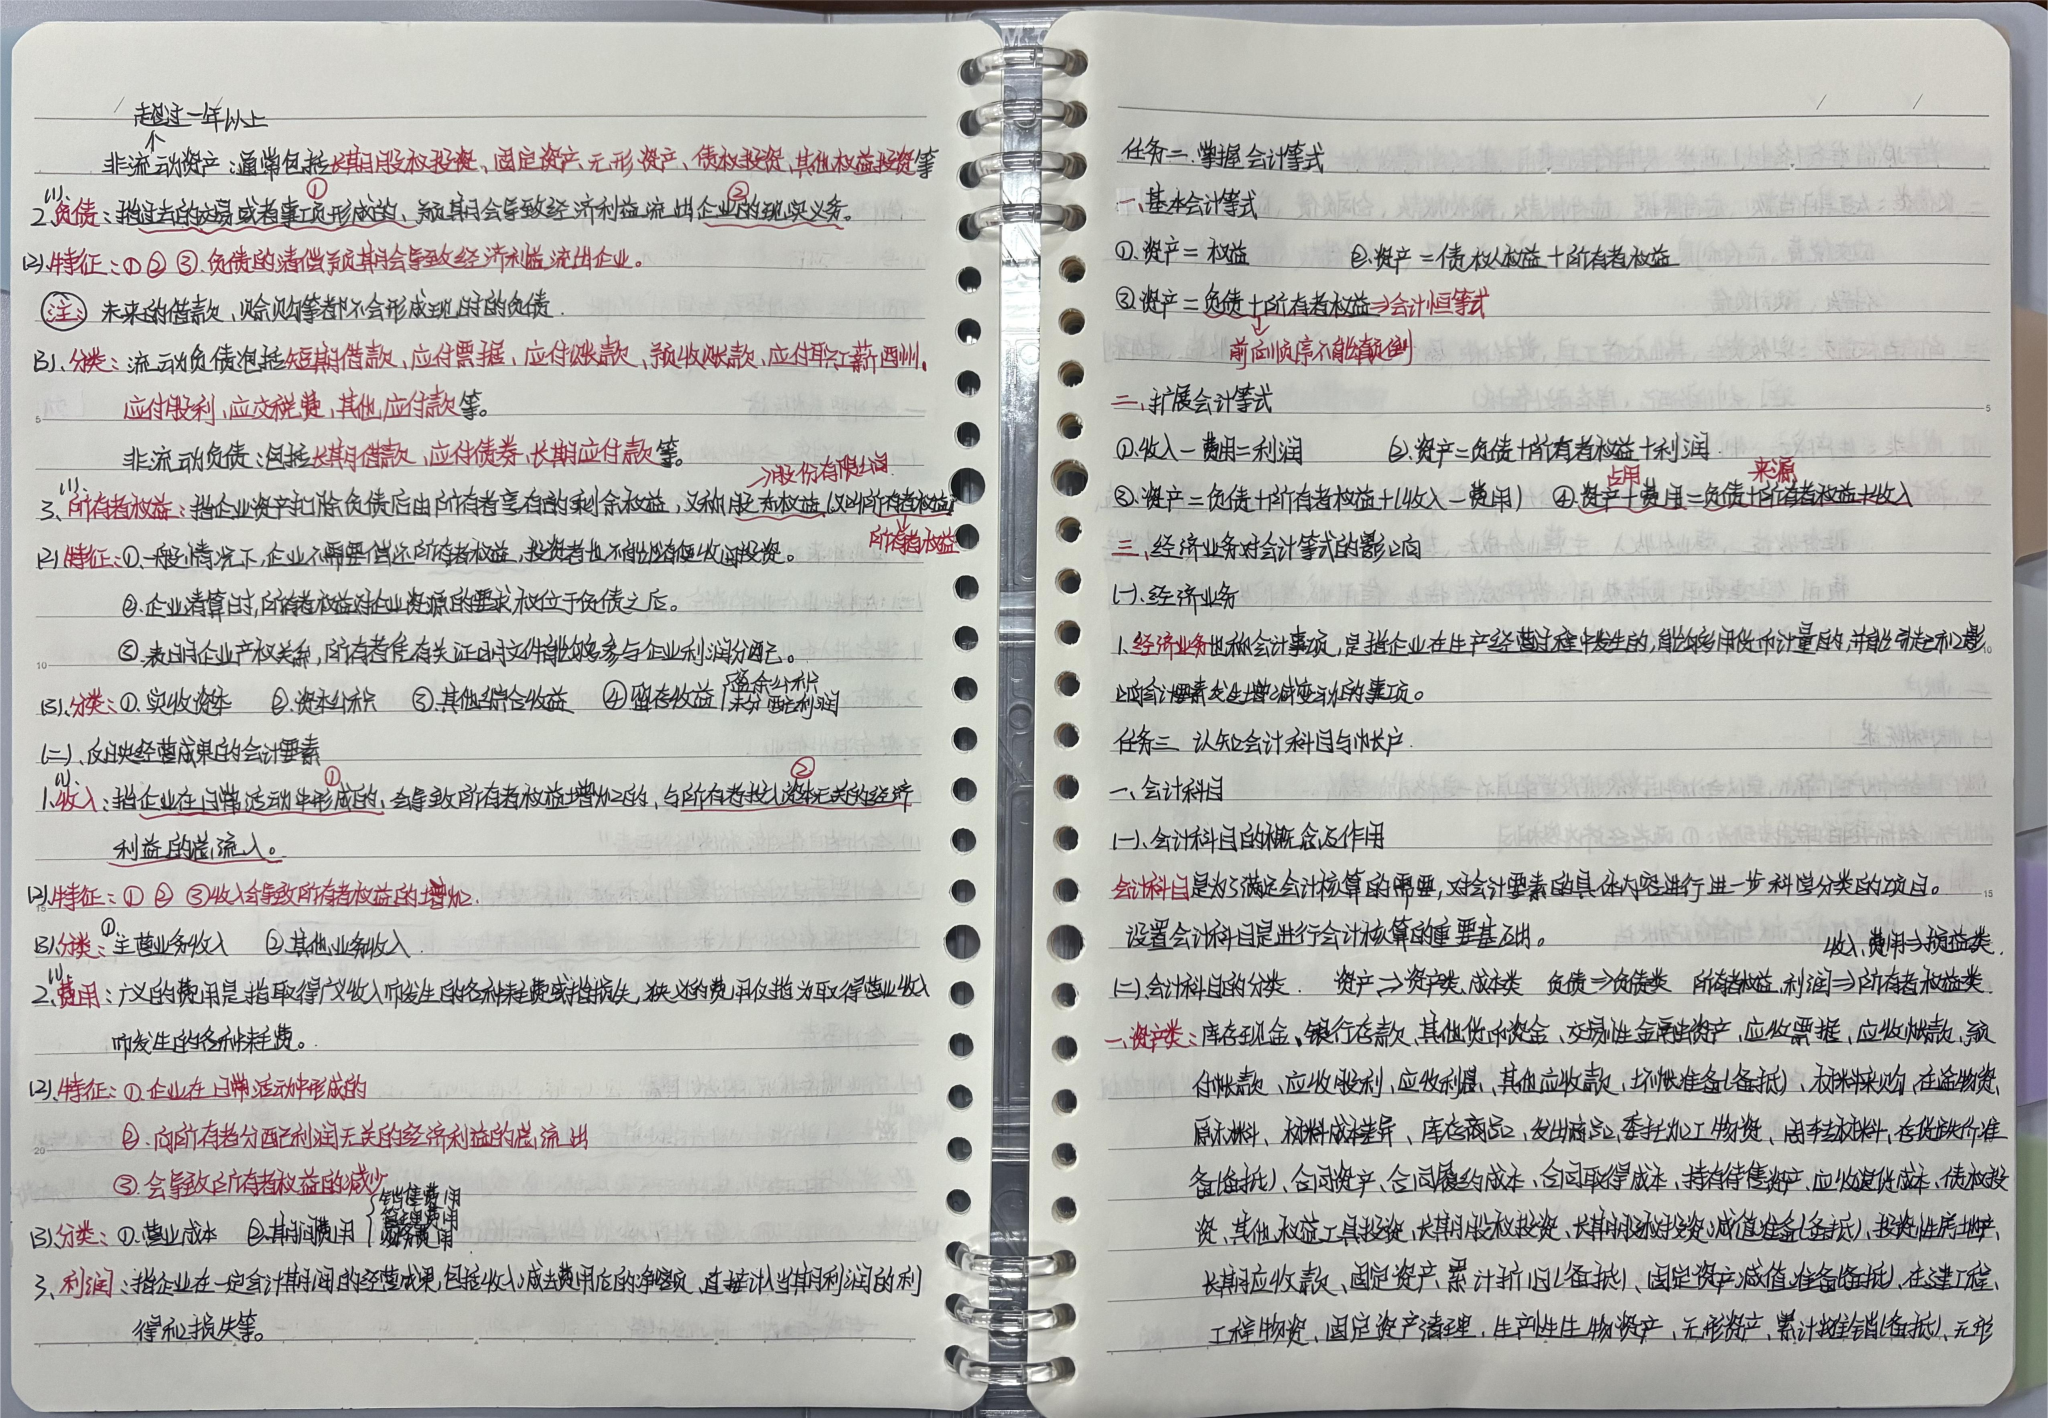 超过一年以上
↑
非流动资产：通常包括长期股权投资、固定资产、无形资产、债权投资、其他权益投资等
2.⑴负债：指过去的交易或者事项形成的①、预期会导致经济利益流出企业的现实义务②。
⑵.特征：① ② ③.负债的清偿预期会导致经济利益流出企业。
注：未来的借款，赊购等都不会形成现时的负债.
⑶.分类：流动负债包括短期借款、应付票据、应付账款、预收账款、应付职工薪酬、
应付股利，应交税费，其他应付款等。
非流动负债：包括长期借款、应付债券、长期应付款等。
→股份有限公司
3.⑴所有者权益：指企业资产扣除负债后由所有者享有的剩余权益，又称股东权益(又叫所有者权益)
所有者权益
⑵特征：①.一般情况下，企业不需要偿还所有者权益，投资者也不能随便收回投资。
②.企业清算时，所有者权益对企业资源的要求权位于负债之后。
③.表明企业产权关系，所有者凭有关证明文件能够参与企业利润分配。
⑶.分类：①.实收资本 ②.资本公积 ③.其他综合收益 ④留存收益{盈余公积
未分配利润
(二)、反映经营成果的会计要素
1.⑴收入：指企业在日常活动中形成的①、会导致所有者权益增加的，与所有者投入资本无关的经济②
利益的总流入。
⑵.特征：① ② ③收入会导致所有者权益的增加.
⑶.分类：①主营业务收入 ②.其他业务收入.
2.⑴费用：广义的费用是指取得广义收入所发生的各种耗费或指损失，狭义的费用仅指为取得营业收入
所发生的各种耗费。
⑵.特征：①.企业在日常活动中形成的
②.向所有者分配利润无关的经济利益的总流出
③.会导致所有者权益的减少
⑶.分类：①.营业成本 ②.期间费用{销售费用
管理费用
财务费用
3.利润：指企业在一定会计期间的经营成果，包括收入减去费用后的净额、直接计入当期利润的利
得和损失等。
任务二.掌握会计等式
一、基本会计等式
①.资产＝权益 ②.资产＝债权人权益＋所有者权益
③.资产＝负债＋所有者权益⇒会计恒等式
前后顺序不能颠倒
二、扩展会计等式
①收入－费用＝利润 ②.资产＝负债＋所有者权益＋利润.
占用 来源
③.资产＝负债＋所有者权益＋(收入－费用) ④.资产＋费用＝负债＋所有者权益＋收入
三、经济业务对会计等式的影响
(一).经济业务
1.经济业务也称会计事项，是指企业在生产经营过程中发生的，能够用货币计量的，并能引起和影
响会计要素发生增减变动的事项。
任务三 认知会计科目与帐户.
一、会计科目
(一).会计科目的概念及作用
会计科目是为了满足会计核算的需要，对会计要素的具体内容进行进一步科学分类的项目。
设置会计科目是进行会计核算的重要基础。
收入、费用⇒损益类.
(二).会计科目的分类. 资产⇒资产类、成本类 负债⇒负债类 所有者权益、利润⇒所有者权益类.
一、资产类：库存现金、银行存款、其他货币资金、交易性金融资产、应收票据、应收账款、预
付帐款、应收股利，应收利息，其他应收款、坏帐准备(备抵)、材料采购、在途物资、
原材料、材料成本差异、库存商品、发出商品、委托加工物资、周转材料、存货跌价准
备(备抵)、合同资产、合同履约成本、合同取得成本、持有待售资产、应收退货成本、债权投
资、其他权益工具投资、长期股权投资、长期股权投资减值准备(备抵)、投资性房地产、
长期应收款、固定资产、累计折旧(备抵)、固定资产减值准备(备抵)、在建工程、
工程物资、固定资产清理、生产性生物资产、无形资产、累计摊销(备抵)、无形